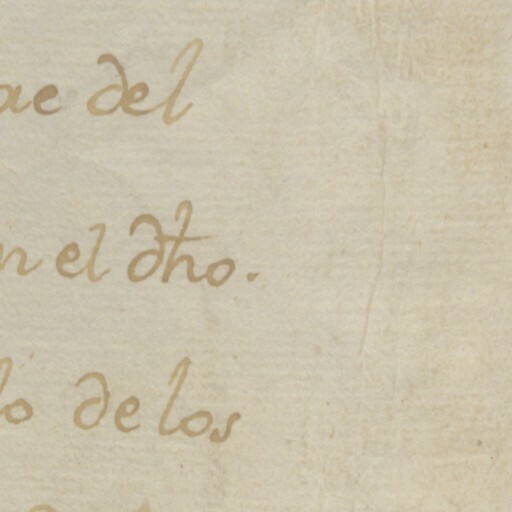 ae del
n el dho.
lo de los